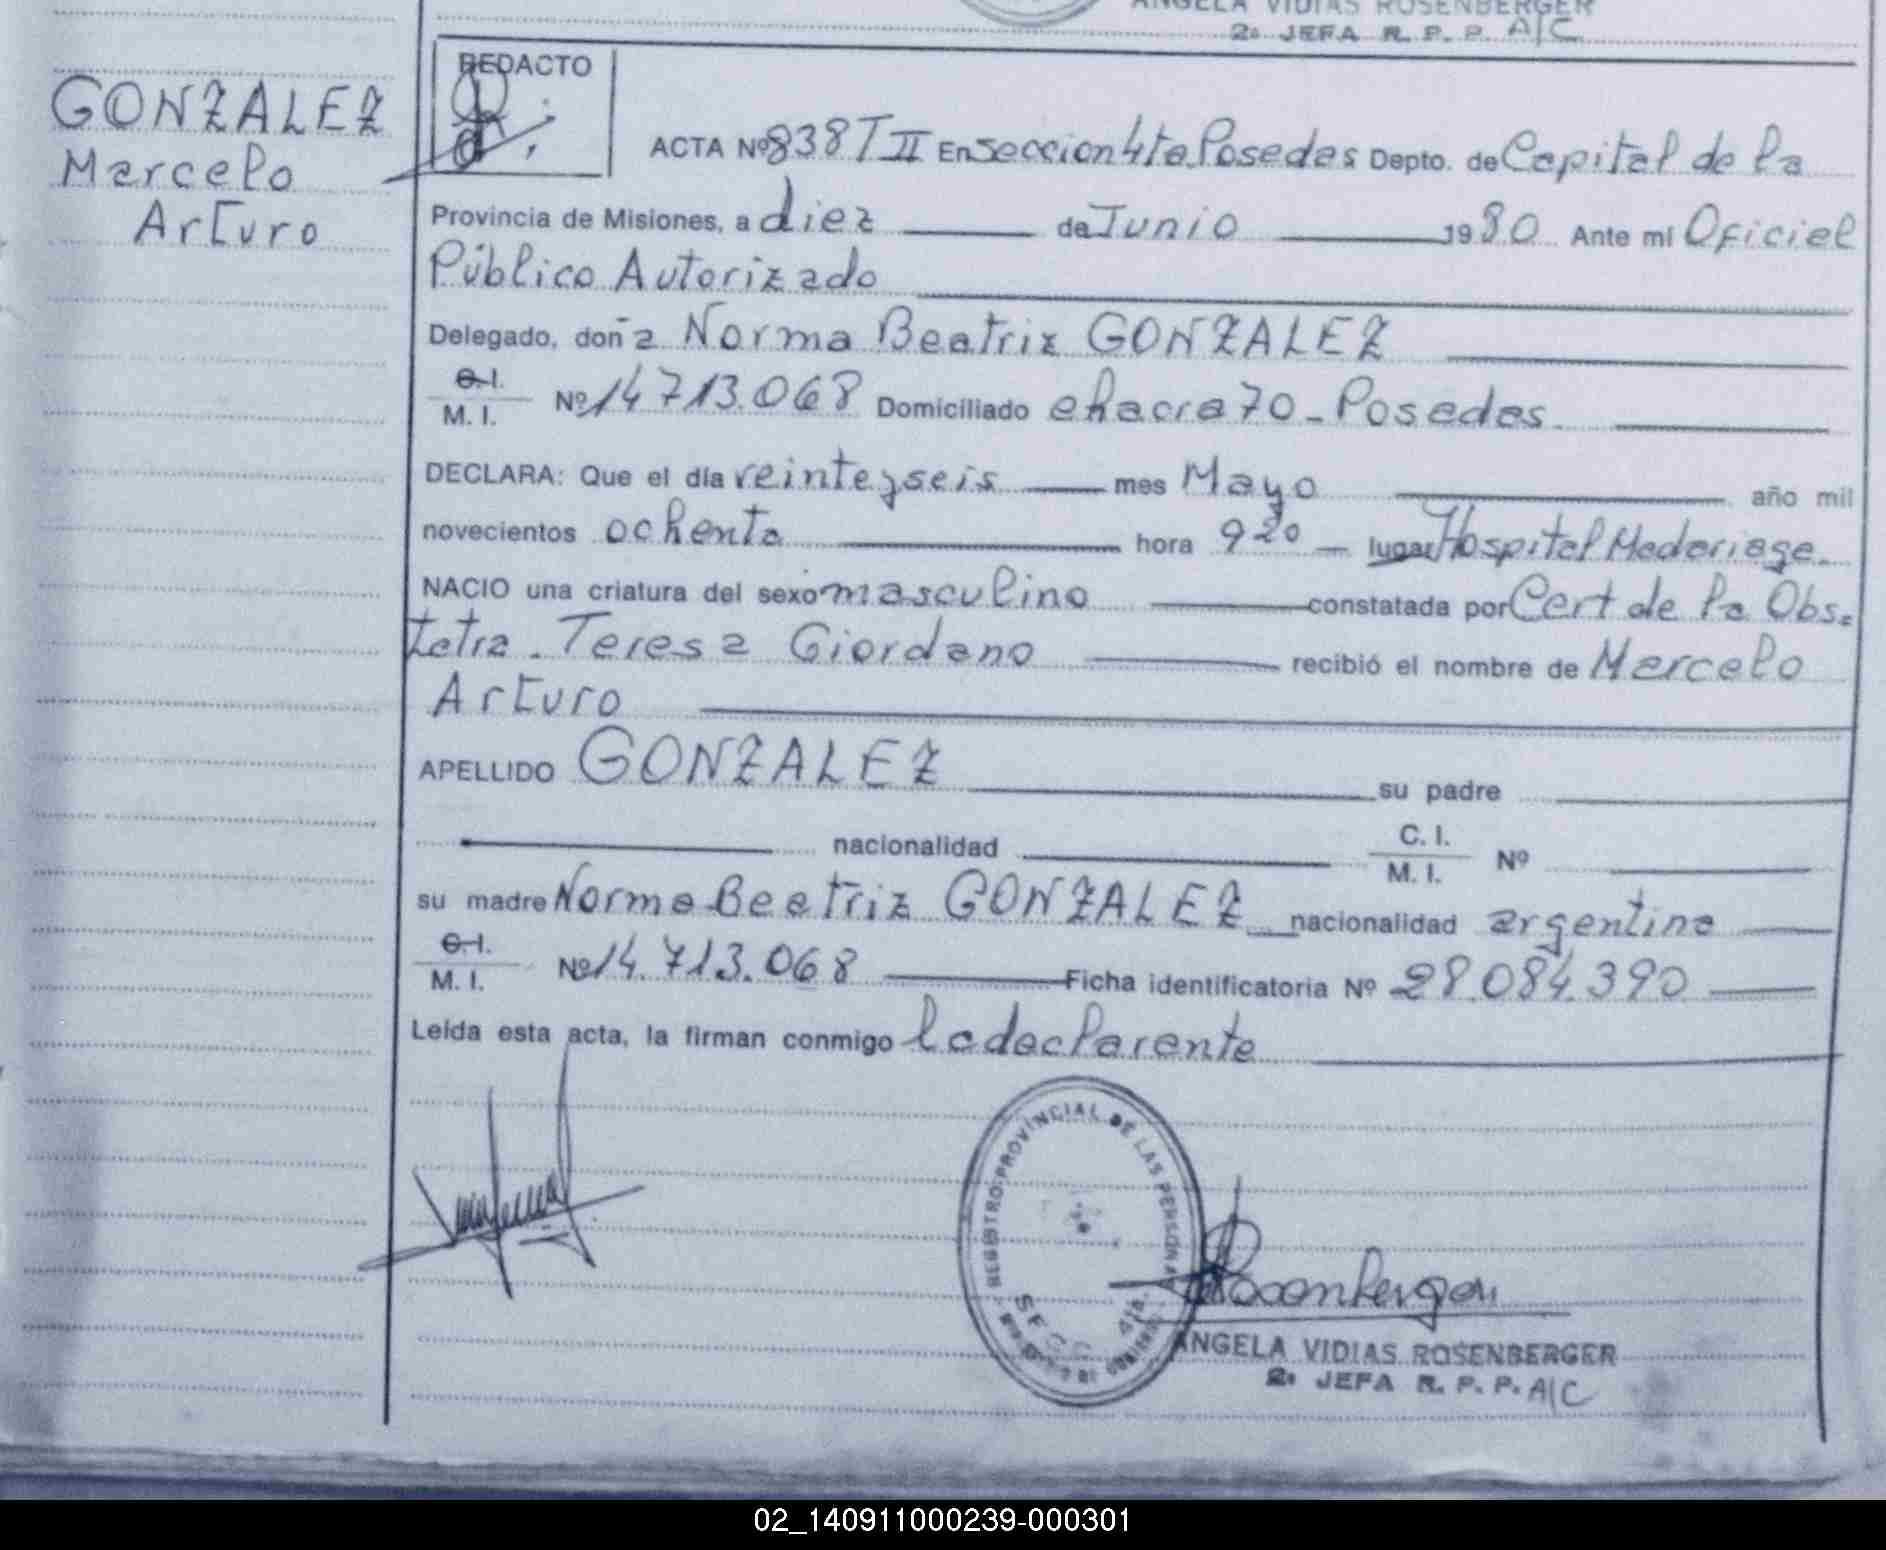 ANGELA VIDIAS ROSENBERGER
2ª JEFA R. P. P. A/C
GONZALEZ
Marcelo
Arturo
REDACTO
ACTA Nº 838 T II En Seccion 4ta Posadas Depto. de Capital de la
Provincia de Misiones, a diez de Junio 1980 Ante mí Oficial
Público Autorizado
Delegado, doña Norma Beatriz GONZALEZ
C. I.
M. I. Nº 14.713.068 Domiciliado chacra 70 - Posadas
DECLARA: Que el día veinteyseis mes Mayo año mil
novecientos ochenta hora 9 20 lugar Hospital Madariaga
NACIO una criatura del sexo masculino constatada por Cert de la Obs-
tetra. Teresa Giordano recibió el nombre de Marcelo
Arturo
APELLIDO GONZALEZ su padre
nacionalidad C. I.
M. I. Nº
su madre Norma Beatriz GONZALEZ nacionalidad argentina
C. I.
M. I. Nº 14.713.068 Ficha identificatoria Nº 28.084.390
Leída esta acta, la firman conmigo la declarante
REGISTRO PROVINCIAL DE LAS PERSONAS
SECC 4ta.
Rosenberger
ANGELA VIDIAS ROSENBERGER
2ª JEFA R. P. P. A/C
02_140911000239-000301